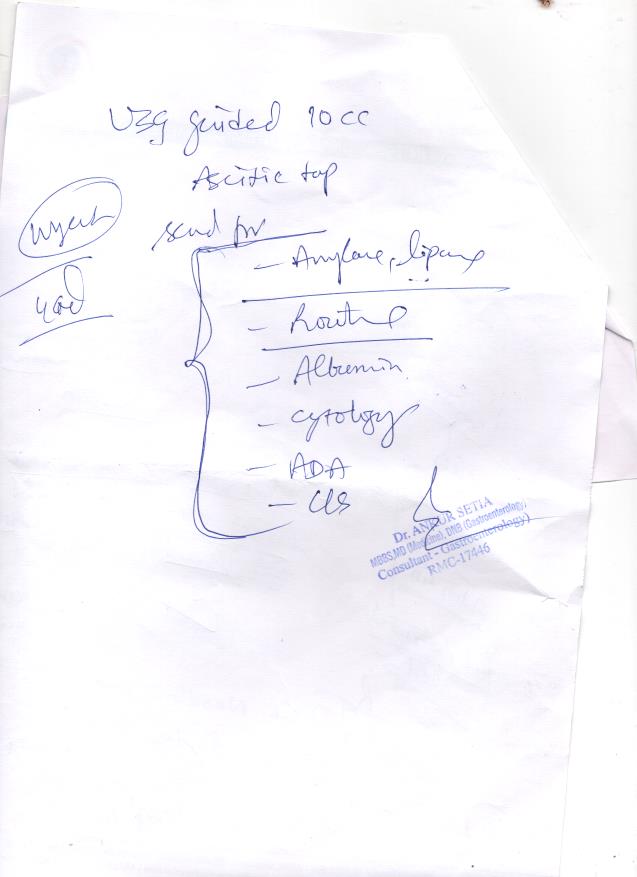 USG guided 10 cc
Ascitic tap
urgent
send for
- Amylase, lipase
- Routine
- Albumin
- Cytology
- ADA
- C/S
Dr. ANKUR SETIA
MBBS,MD (Medicine), DNB (Gastroenterology)
Consultant - Gastroenterology)
RMC-17446